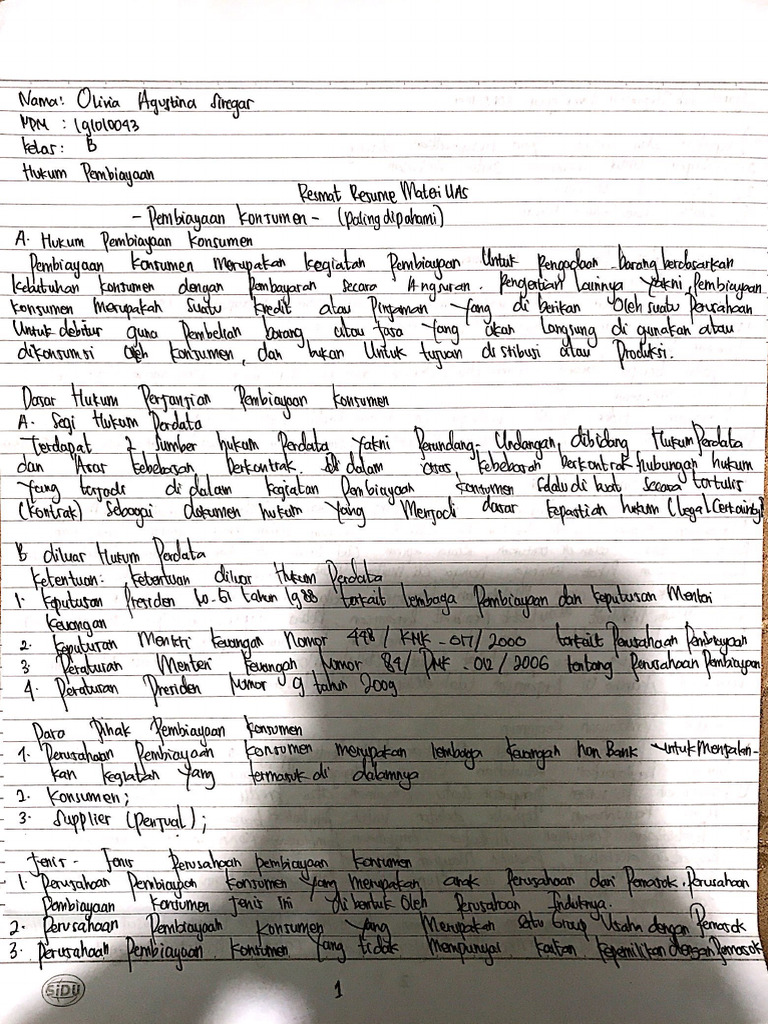 Nama: Olivia Agustina Siregar
NPM : 191010043
Kelas: B
Hukum Pembiayaan
Resmat Resume Materi UAS
- Pembiayaan Konsumen - (paling dipahami)
A. Hukum Pembiayaan Konsumen
Pembiayaan Konsumen merupakan kegiatan Pembiayaan Untuk pengadaan barang berdasarkan
kebutuhan konsumen dengan pembayaran secara Angsuran. Pengertian lainnya yakni Pembiayaan
konsumen merupakah suatu kredit atau Pinjaman yang di berikan oleh suatu Perusahaan
Untuk debitur guna Pembelian barang atau jasa yang akan langsung di gunakan atau
dikonsumsi oleh konsumen, dan bukan Untuk tujuan distibusi atau Produksi.
Dasar Hukum Perjanjian Pembiayaan Konsumen
A. Segi Hukum Perdata
Terdapat 2 Sumber hukum Perdata yakni Perundang-Undangan dibidang Hukum Perdata
dan Asas kebebasan berkontrak. di dalam asas kebebasan berkontrak hubungan hukum
yang terjadi di dalam kegiatan Pembiayaan konsumen selalu di buat secara tertulis
(kontrak) sebagai dokumen hukum yang Menjadi dasar kepastian hukum (legal Certainty)
B diluar Hukum Perdata
ketentuan-ketentuan diluar Hukum Perdata
1. keputusan Presiden No.61 tahun 1988 terkait lembaga Pembiayaan dan keputusan Menteri
keuangan
2. keputusan Mentri keuangan Nomor 448 / KMK.017/2000 terkait Perusahaan Pembiayaan
3. Peraturan Menteri keuangan Nomor 84/ PMK.012/2006 tentang Perusahaan Pembiayaan
4. Peraturan Presiden Nomor 9 tahun 2009
Para Pihak Pembiayaan konsumen
1. Perusahaan Pembiayaan konsumen merupakan lembaga keuangan non Bank untuk Menjalan-
kan kegiatan yang termasuk di dalamnya
2. Konsumen;
3. Supplier (penjual);
Jenis - Jenis Perusahaan pembiayaan konsumen
1. Perusahaan Pembiayaan konsumen yang merupakan anak Perusahaan dari Pemasok. Perusahaan
Pembiayaan konsumen jenis ini dibentuk oleh Perusahaan Induknya.
2. Perusahaan Pembiayaan konsumen yang Merupakan satu Group Usaha dengan Pemasok
3. Perusahaan Pembiayaan konsumen yang tidak mempunyai kaitan kepemilikan dengan Pemasok
SiDU
1